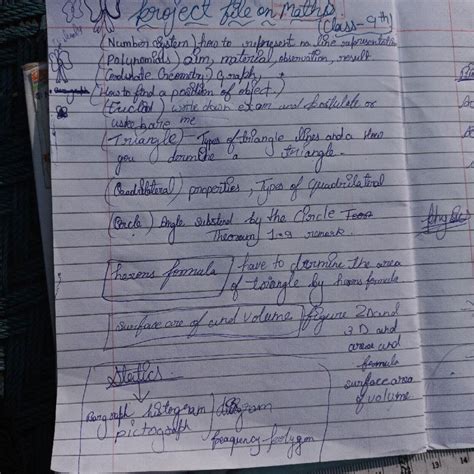 project file on Maths
(Class-9th)
(Number System) how to represent no line representation
(Polynomials) aim, material, observation, result
Geometry) Graph
(How to find a position of object.)
(Euclid) write down exam and postulate or
me
Triangle) - Types of triangle lines and a How
you dermine a triangle.
(Quadrilateral) properties, Types of Quadrilateral
(Circle) Angle substend by the Circle
Theorem 1-9 remark.
herons formula) have to dermine the area
of triangle by herons formula
surface are of and volume) figure 2D and
3D and
area and
formula
surface area
of volume
Statics
histogram) diagram
pictograph
frequency polygon